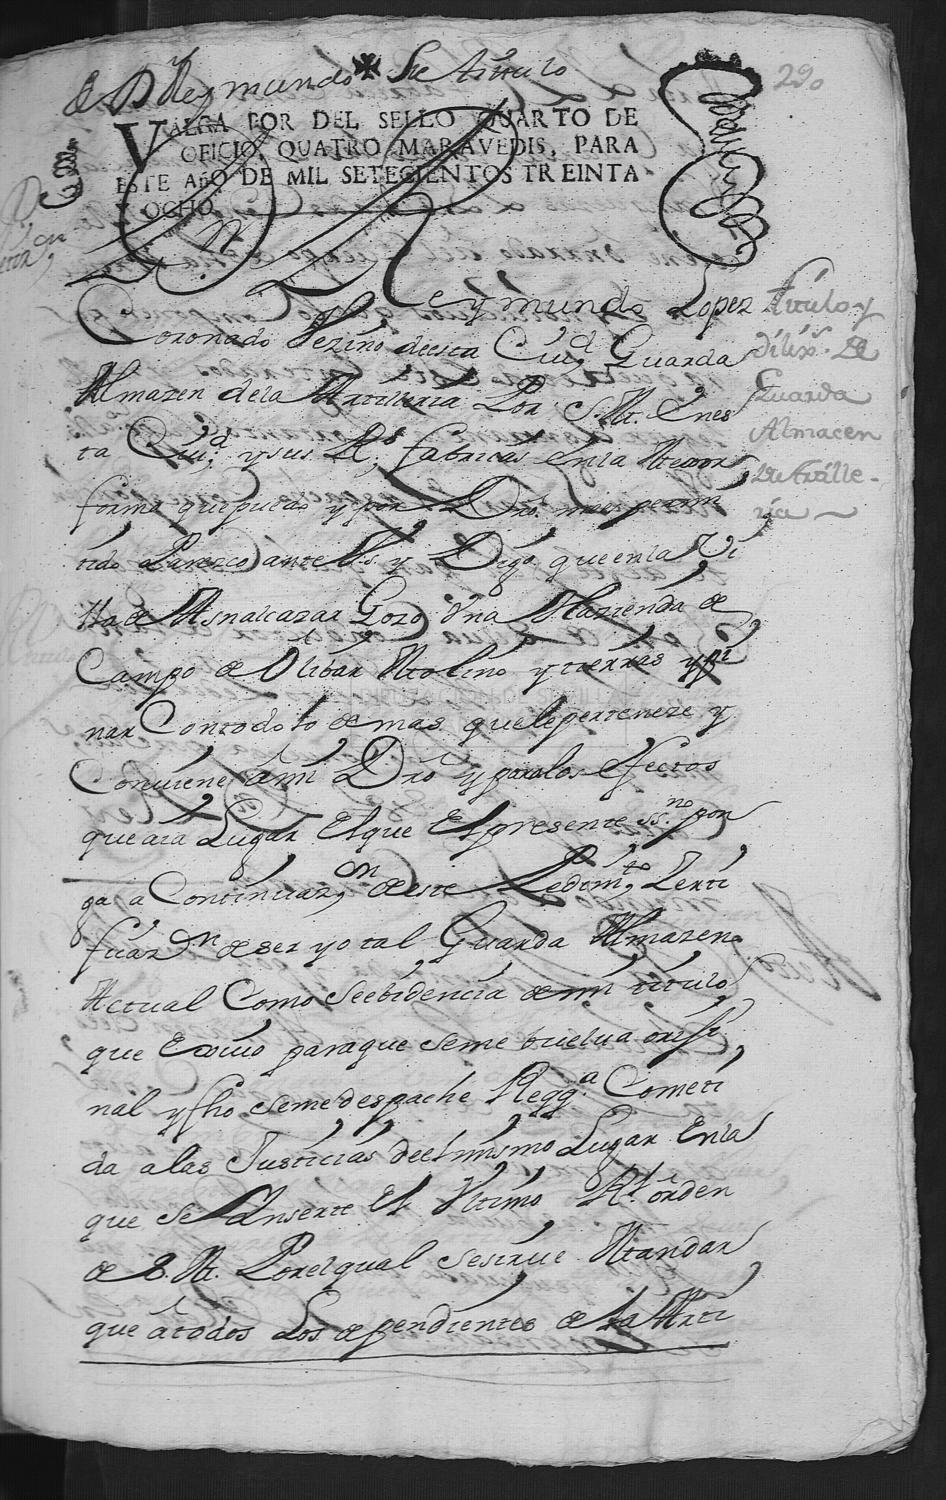 de Dn Reymundo Su titulo
290
VALGA POR DEL SELLO QUARTO DE
OFICIO, QUATRO MARAVEDIS, PARA
ESTE AñO DE MIL SETECIENTOS TREINTA
OCHO.
Reymundo Lopez
Coronado Vezino deesta Ciud Guarda
Almazen dela Artilleria Por S. M. Enes
ta Ciud. ysus Rs. fabricas Enla Mexor
forma que puedo y por Dro. mas permi
tido Parezco ante Vs y Digo queenla Vi
lla de Asnalcazar Gozo Vna Hazienda de
Campo de Olibar Molino y tierras ypi
nar Contodo lo demas quele perteneze y
Conviene âmi Dro y paralos efectos
que aia Lugar Elque El presente ssno. pon
ga a Continuazon deeste Pedimto, Zerti
ficazon de ser yo tal Guarda Almazen
Actual Como Seebidencia demi titulo
que Exsivo paraque seme buelva orixi
nal y fho seme despache Reqqa Cometi
da alas Justicias deel mismo Lugar Enla
que se Ynserte El Vltimo Rl. orden
de S. M. Porelqual sesirve Mandar
que âtodos Los dependientes de la Arti
titulo y
dilixs. de
Guarda
Almacen
de Artille-
ria